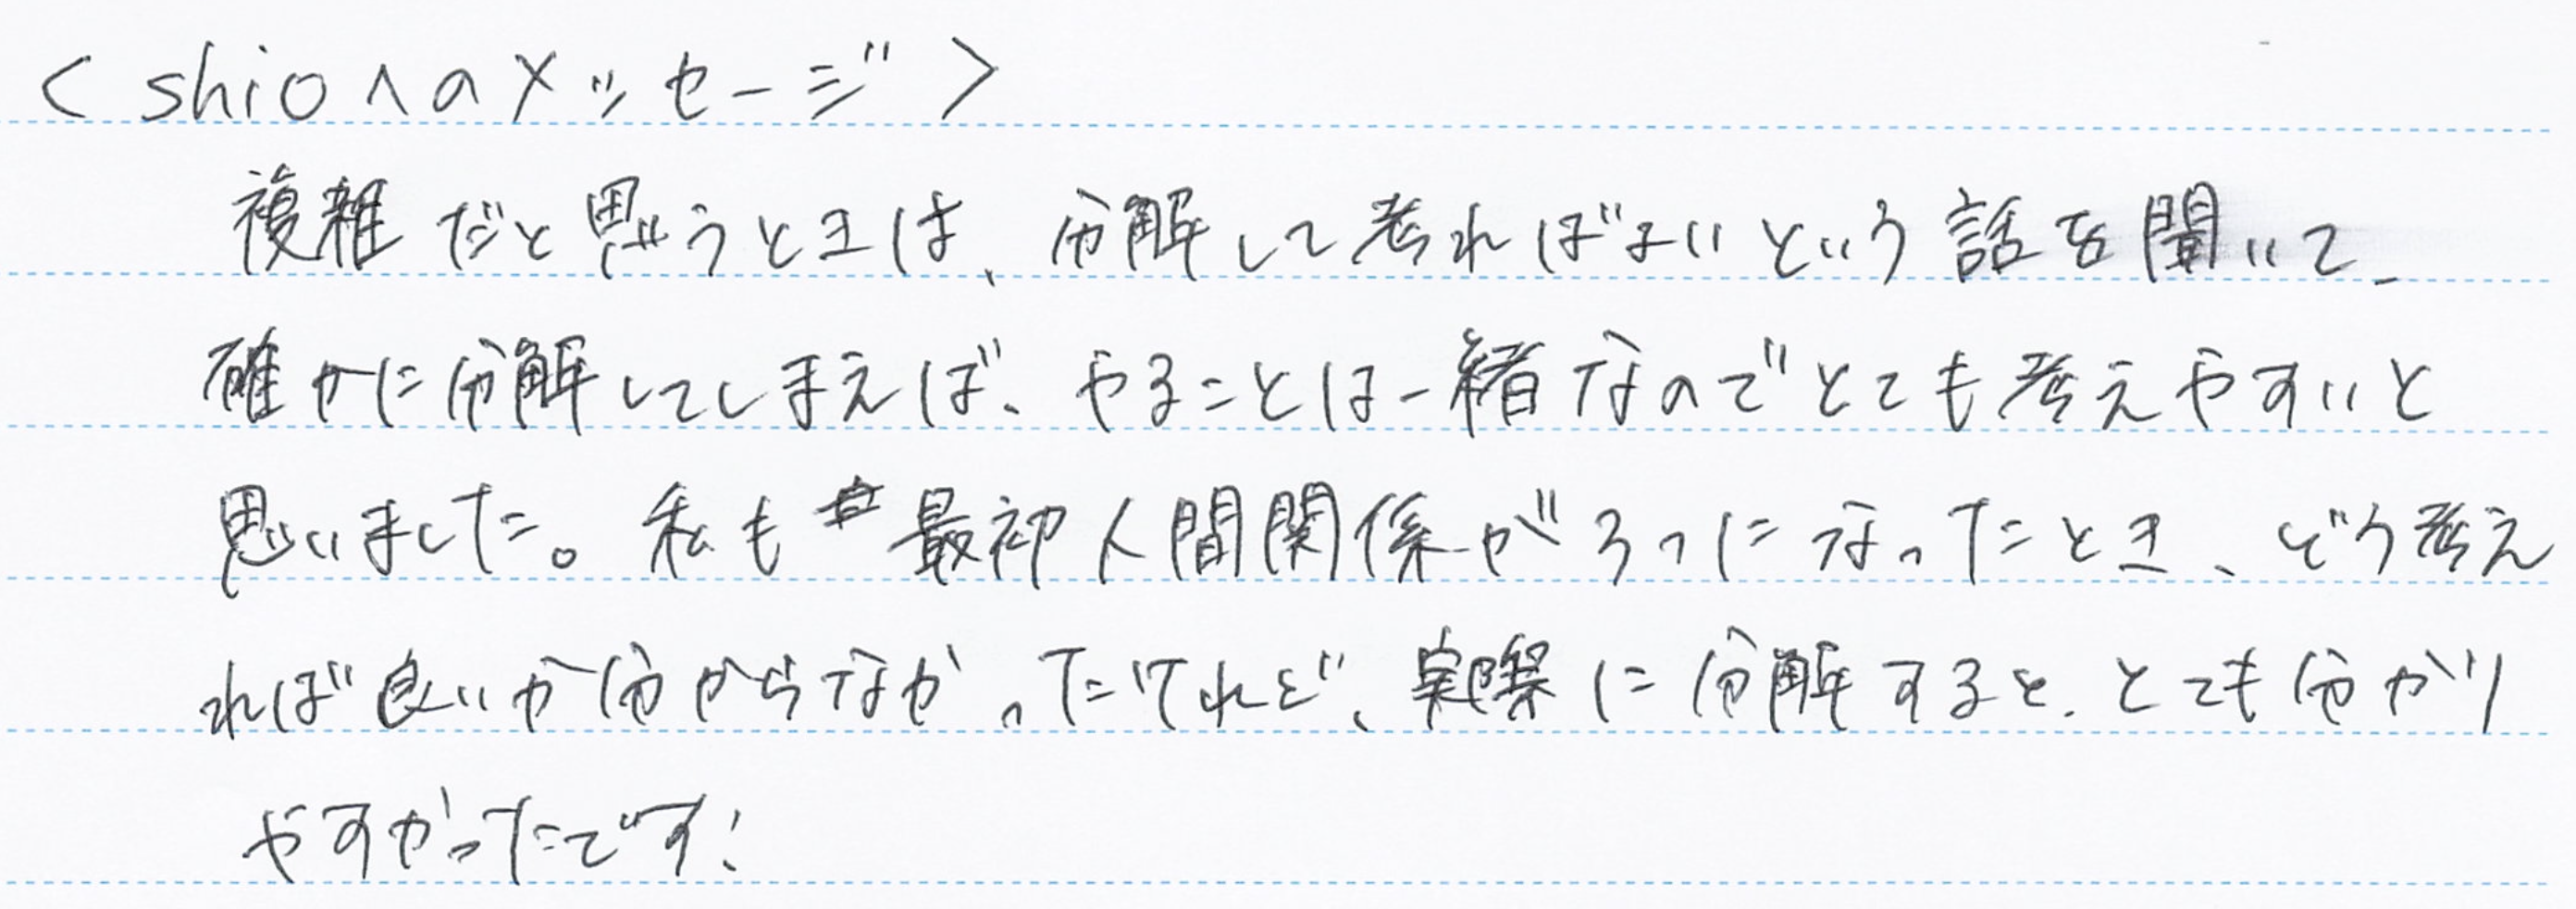 <shioへのメッセージ>
複雑だと思うときは、分解して考ればよいという話を聞いて、
確かに分解してしまえば、やることは一緒なのでとても考えやすいと
思いました。私も最初人間関係が3つになったとき、どう考え
れば良いか分からなかったけれど、実際に分解すると、とても分かり
やすかったです!